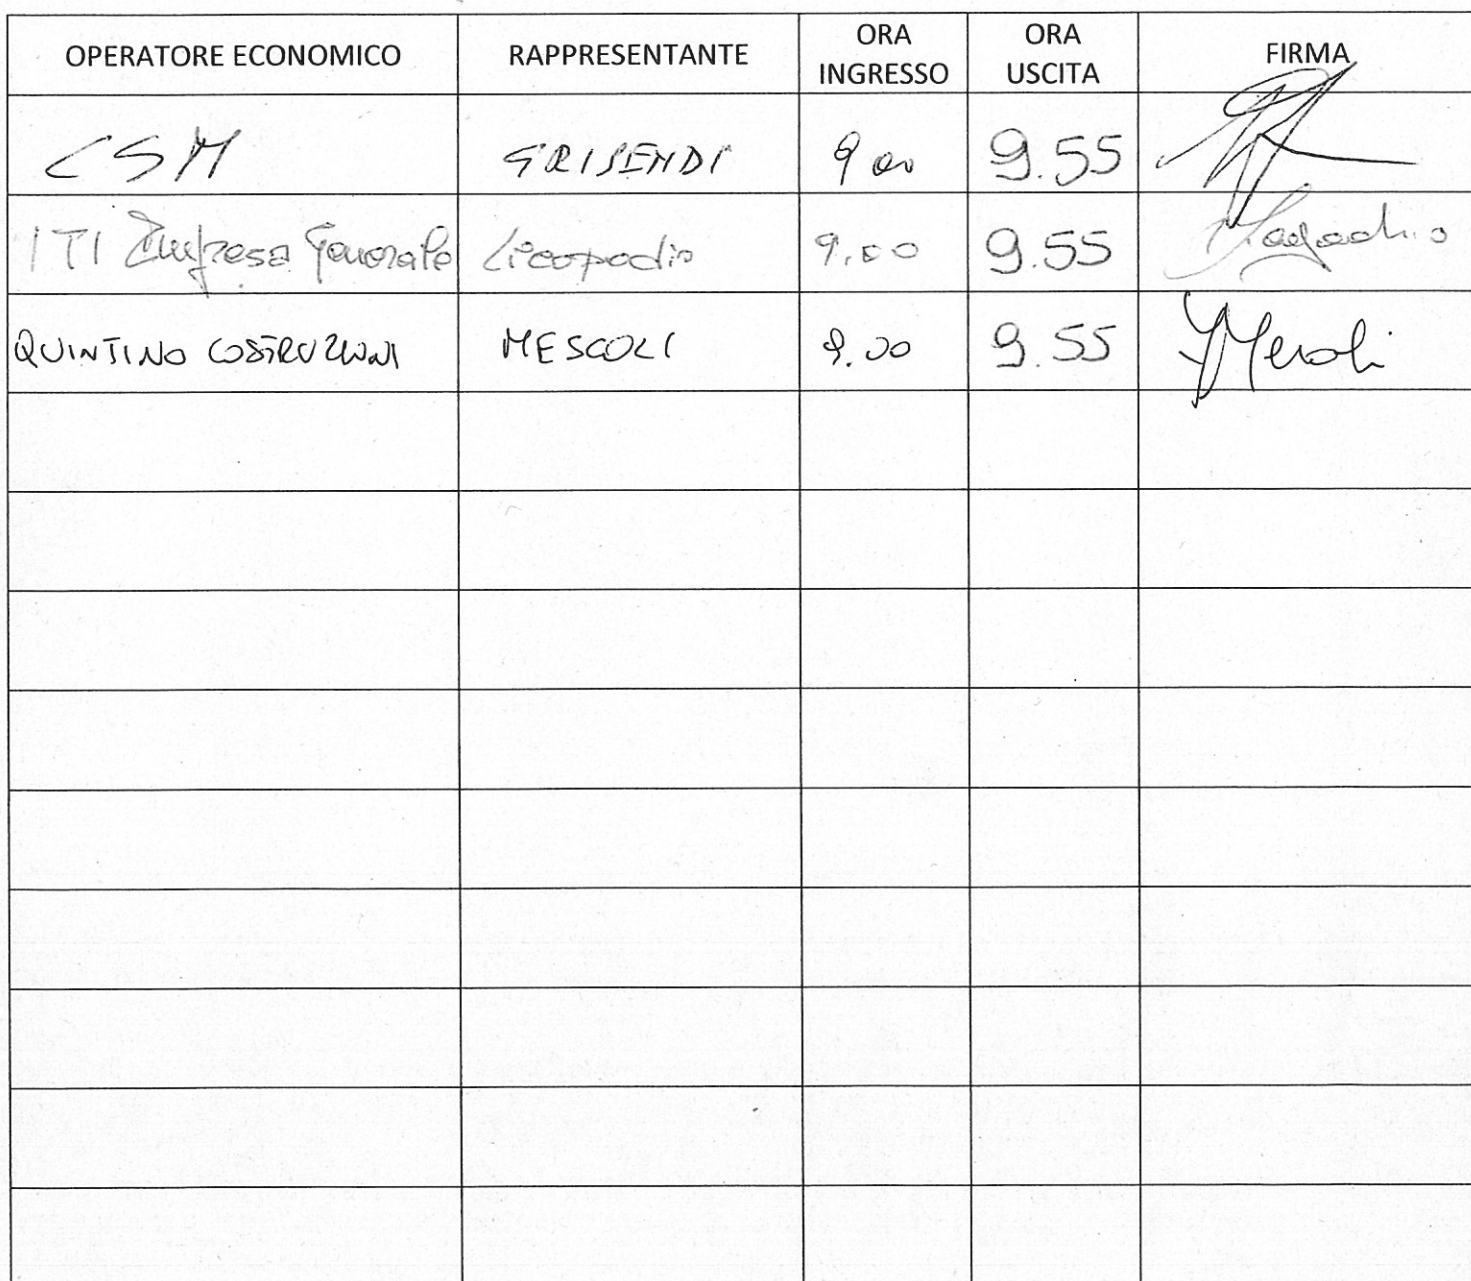 OPERATORE ECONOMICO RAPPRESENTANTE ORA INGRESSO ORA USCITA FIRMA
CSM GRISENDI 9 00 9.55
ITI Impresa Generale Licopodio 9.00 9.55
QUINTINO COSTRUZIONI MESCOLI 9.00 9.55 Mescoli